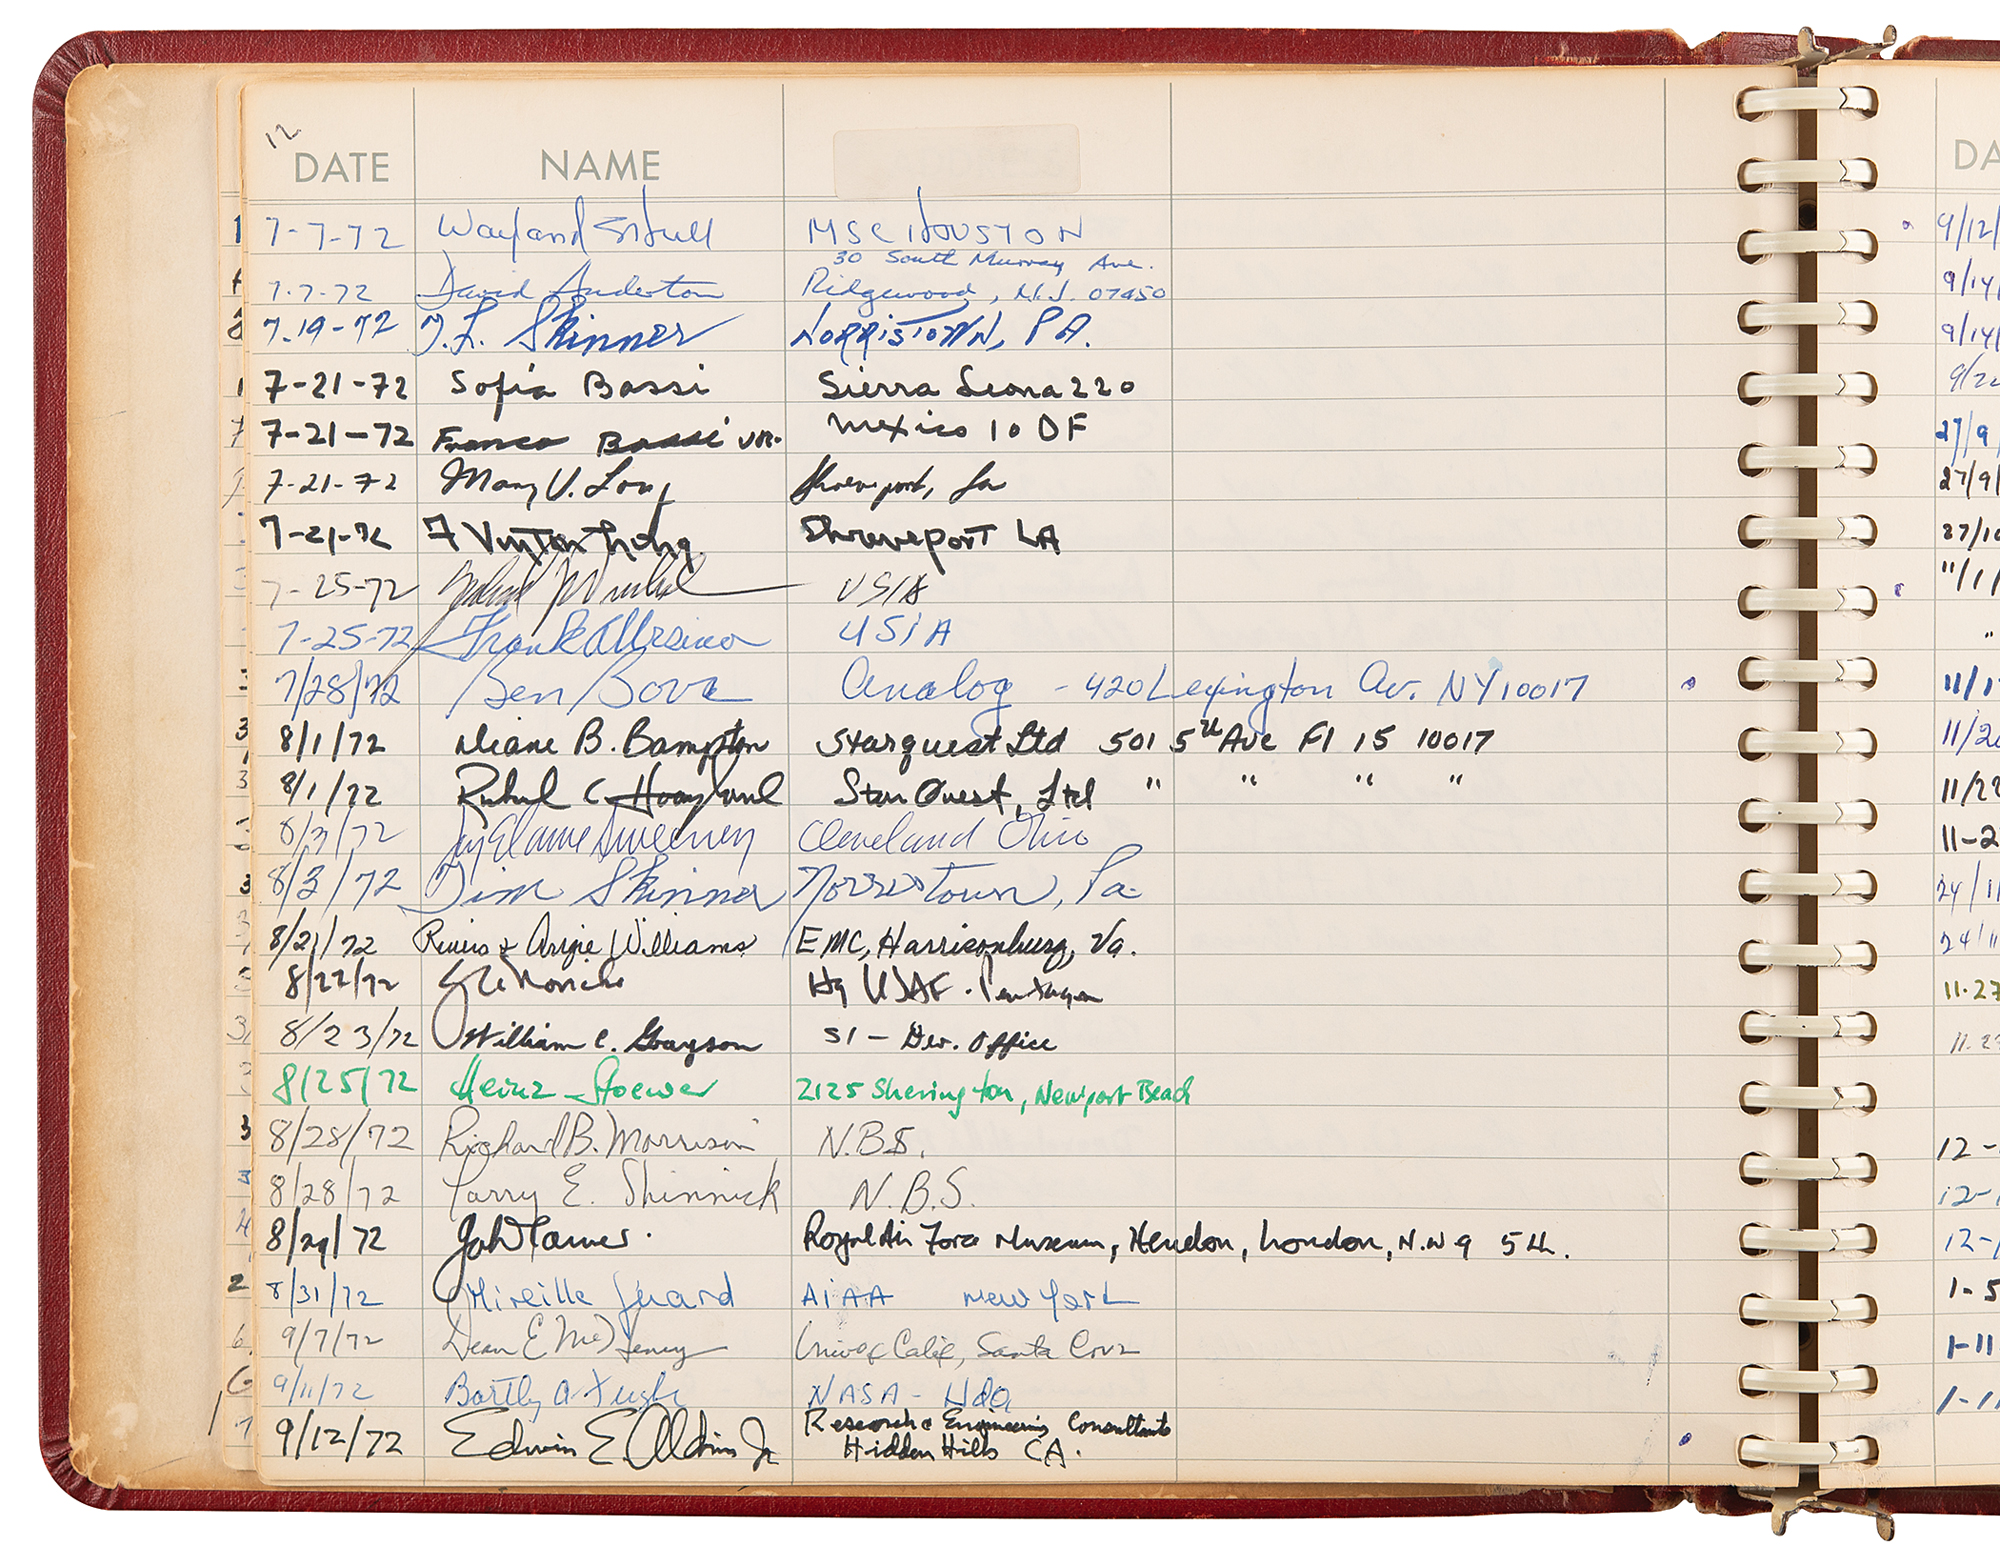 12
DATE NAME DA
7-7-72 Wayland Hull MSC HOUSTON 9/12/
30 South Murray Ave.
7-7-72 David Anderton Ridgewood, N.J. 07450 9/14/
7-19-72 T.L. Skinner NORRISTOWN, PA. 9/14/
7-21-72 Sofia Bassi Sierra Leona 220 9/22
7-21-72 Franco Bassi Mexico 10 DF 27/9
7-21-72 Mary V. Long Shreveport, La 27/9/
7-21-72 F Vinton Long Shreveport LA 27/10
7-25-72 USIA "/1/
7-25-72 Frank USIA "
7/28/72 Ben Bova Analog - 420 Lexington Av. NY 10017 11/1
8/1/72 Diane B. Bampton Starquest Ltd 501 5th Ave Fl 15 10017 11/20
8/1/72 C Hoagland Star Quest, Ltd " " " " 11/22
8/3/72 Jay Elaine Sweeney Cleveland Ohio 11-2
8/3/72 Jim Skinner Norristown, Pa. 24/11
8/21/72 Rivers & Argie Williams EMC, Harrisonburg, Va. 24/11
8/22/72 Hq USAF - Pentagon 11-27
8/23/72 William C. Grayson SI - Dev. Office 11-2
8/25/72 Heinz Stoewer 2125 Sherington, Newport Beach
8/28/72 Richard B. Morrison N.B.S. 12-
8/28/72 Larry E. Shinnick N.B.S. 12-1
8/29/72 Royal Air Force Museum, Hendon, London, N.W 9 12-
8/31/72 Mireille Gerard AIAA New York 1-5
9/7/72 Dean E McHenry Univ of Calif, Santa Cruz 1-11
9/11/72 NASA - Hdq 1-1
9/12/72 Edwin E Aldrin Jr Research & Engineering Consultants
Hidden Hills CA.